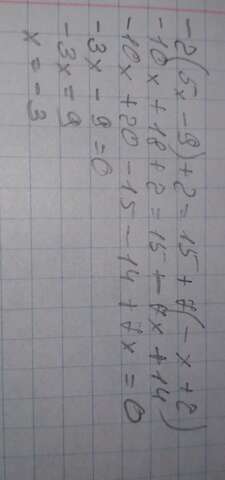 -2(5x - 9) + 2 = 15 + 7(-x + 2)
-10x + 18 + 2 = 15 + -7x + 14
-10x + 20 - 15 - 14 + 7x = 0
-3x - 9 = 0
-3x = 9
x = -3